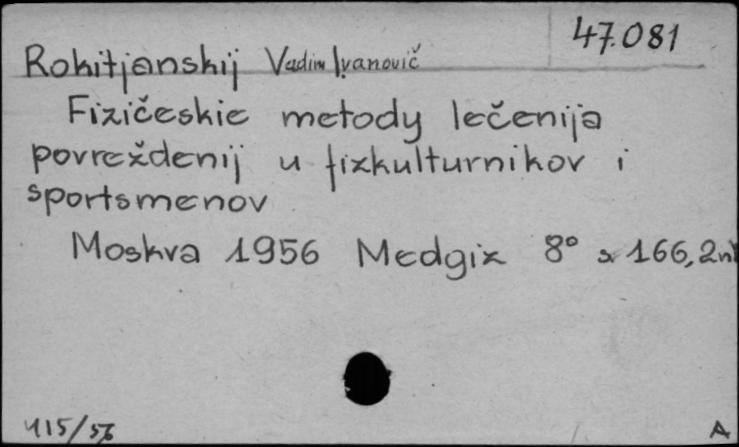 47.081
Rokitjanskij Vadim Ivanovič
Fizičeskie metody lečenija
povreždenij u fizkulturnikov i
sportsmenov
Moskva 1956 Medgiz 8° s 166, 2nl
415/56 A